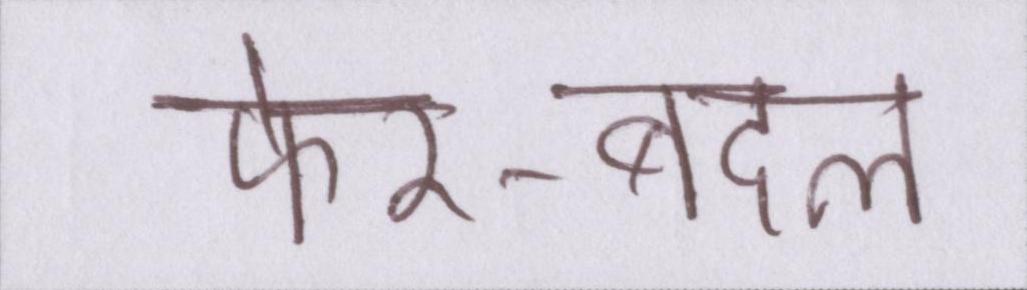 फेर-बदल